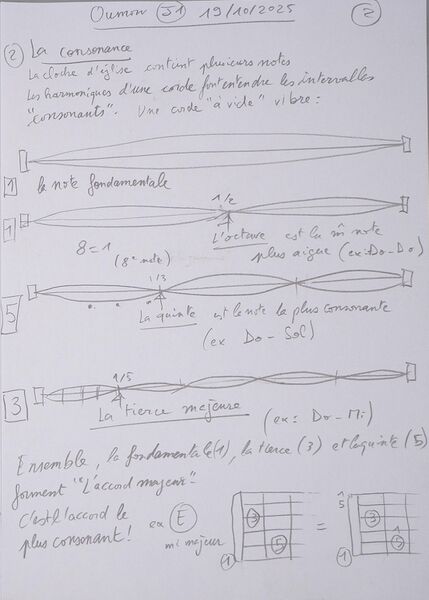 Oumon J1 19/10/2025 2
2 La consonance
La cloche d'église contient plusieurs notes
Les harmoniques d'une corde font entendre les intervalles
"consonants". Une corde "à vide" vibre :
1 la note fondamentale
1/2
1
8=1
(8e note)
L'octave est la m̂ note
plus aigue (ex: Do-Do)
1/3
5
La quinte est la note la plus consonante
(ex Do - Sol)
1/5
3
La tierce majeure (ex: Do-Mi)
Ensemble, la fondamentale (1), la tierce (3) et la quinte (5)
forment "L'accord majeur".
C'est l'accord le
plus consonant! ex E
mi majeur
3 5 1 = 5 3 1 5